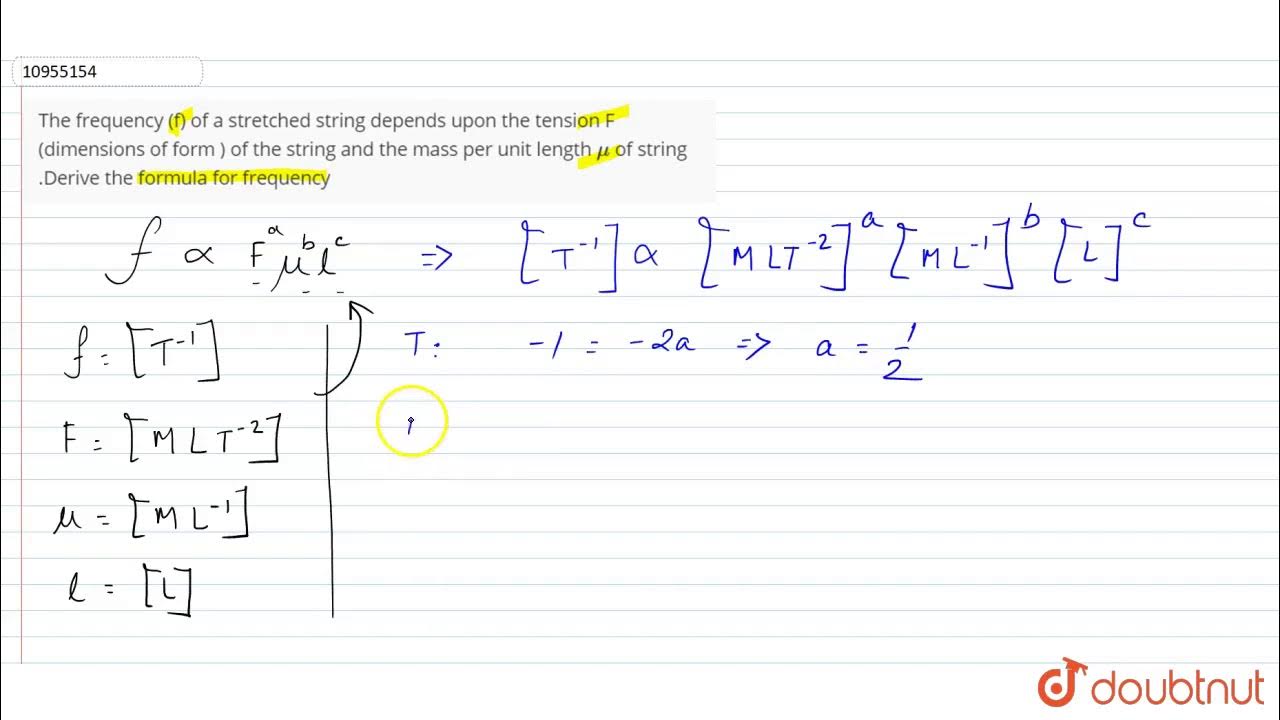 10955154
The frequency (f) of a stretched string depends upon the tension F
(dimensions of form ) of the string and the mass per unit length μ of string
.Derive the formula for frequency
f ∝ F^a μ^b l^c => [T^-1] ∝ [MLT^-2]^a [ML^-1]^b [L]^c
f = [T^-1]
T: -1 = -2a => a = 1/2
F = [MLT^-2]
μ = [ML^-1]
l = [L]
doubtnut